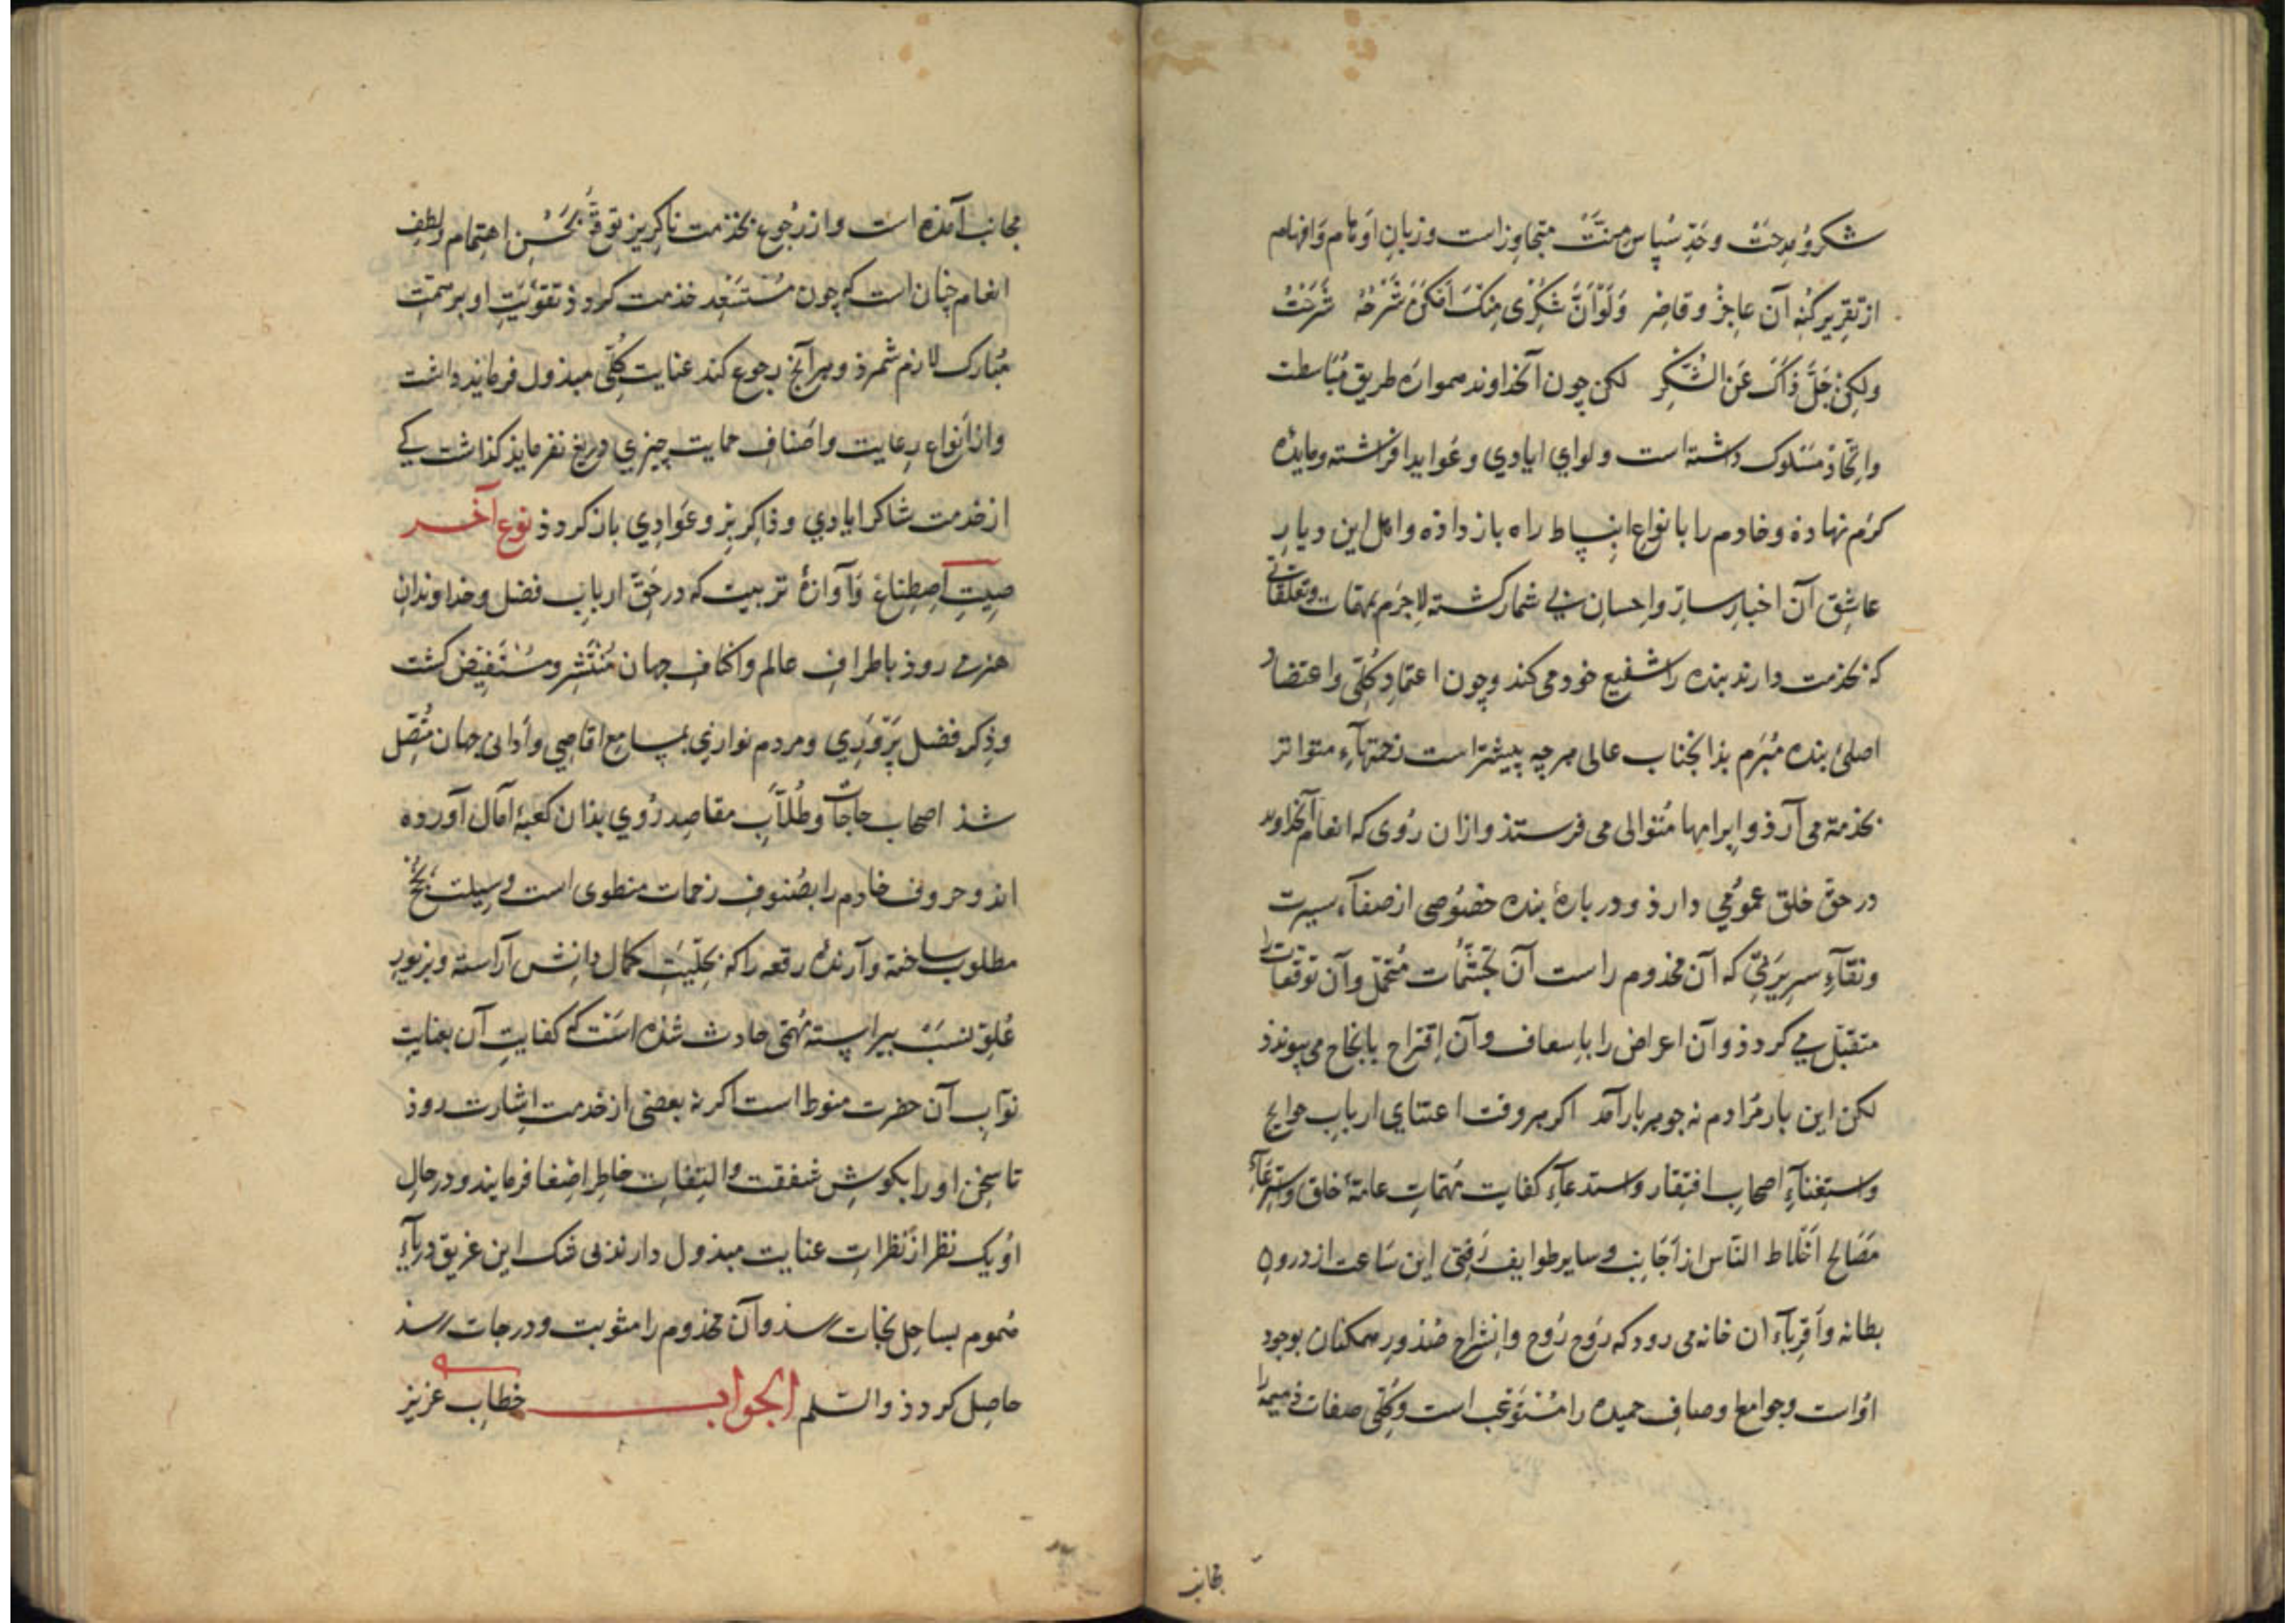 شکر و مدحت و حدّ سپاس منتت متجاوز است و زبان اوهام و افهام
از تقریر کنه آن عاجز و قاصر وَلَوْ اَنَّ شُکْری مِنْكَ اَمْکَنَ شَرْحُهُ شَرَحْتُ
ولکِنْ جَلَّ ذاكَ عَنِ الشُّکْرِ لکن چون آن خداوند همواره طریق مباسطت
واتحاد مسلوک داشته است و لوای ایادی و عواید افراشته و مایدهٔ
کرم نهاده و خادم را بانواع انبساط راه باز داده و اهل این دیار
عاشق آن اخبار سارّ و احسان بی شمار کشته لاجرم بمهمات و تعلقاتی
که بخدمت دارند بنده را شفیع خود می کند و چون اعتماد کلّی و اعتضاد
اصلی بنده مبرم بذان جناب عالی هرچه بیشتر است زحمتهاء متواتر
بخدمة می آرذ و ابرامها متوالی می فرستذ و ازان روی که انعام آن خداوند
در حق خلق عمومی دارذ و در بارهٔ بنده خصوصی از صفآء سیرت
ونقآءِ سریرتی که آن مخدوم راست آن تجشّمات متحمّل و آن توقعات را
متقبّل می کردذ و آن اعراض را باسعاف و آن اقتراح بانجاح می پیوندذ
لکن این بار مرادم نه جو هر بار آمد اکر هر وقت اعتنای ارباب حوایج
واستغنآءِ اصحاب افتقار و استدعآءِ کفایت مهمّات عامهٔ خلق و استرعآءِ
مصالح اخلاط النّاس از اجانب و سایر طوایف رفتی این ساعت از درون
بطانه و اقربآء ان خانه می رود که روح روح و انشراح صدور همکنان بوجود
اوست و جوامع اوصاف حمیده را مستوعب است و کلّی صفات ذمیمه را
بجانب
مجانب آمذه است و از رجوع بخذمت ناکریز توقع بحسن اهتمام و لطف
انعام چنان است که چون مستسعد خذمت کردذ تقویت او بر همّت
مبارک لازم شمرذ و بهر آنچ رجوع کند عنایت کلّی مبذول فرمایذ داشت
واز انواع رعایت و اصناف حمایت چیزی دریغ نفرمایذ کذاشت کی
از خدمت شاکر ایادی و ذاکر بزّ و عوادی باز کردذ نوع آخر
صیت اصطناع و آوازهٔ تربیت که در حق ارباب فضل و خداوندان
هنر می روذ باطراف عالم و اکناف جهان منتشر و مستفیض کشت
وذکر فضل پروری و مردم نوازی بمسامع اقاصی و ادانی جهان متّصل
شذ اصحاب حاجات و طلّاب مقاصد روی بذان کعبهٔ آمال آورده
انذ و حروف خادم را بصنوف زحمات منطوی است وسیلت نجح
مطلوب ساخته و آرندهٔ رقعه را که بحلیت کمال دانش آراسته و بزیور
علوّ نسب پیراسته مهمّی حادث شذه است که کفایت آن بعنایت
نوّاب آن حضرت منوط است اکر نه بعضی از خدمت اشارت روذ
تا سخن او را بکوش شفقت و التفات خاطر اصغا فرمایند و در حال
او یک نظر از نظرات عنایت مبذول دارند بی شک این غریق دریآء
هموم بساحل نجات رسذ و آن مخذوم را مثوبت و درجات رسذ
حاصل کردذ والسّلم الجواب خطاب عزیز